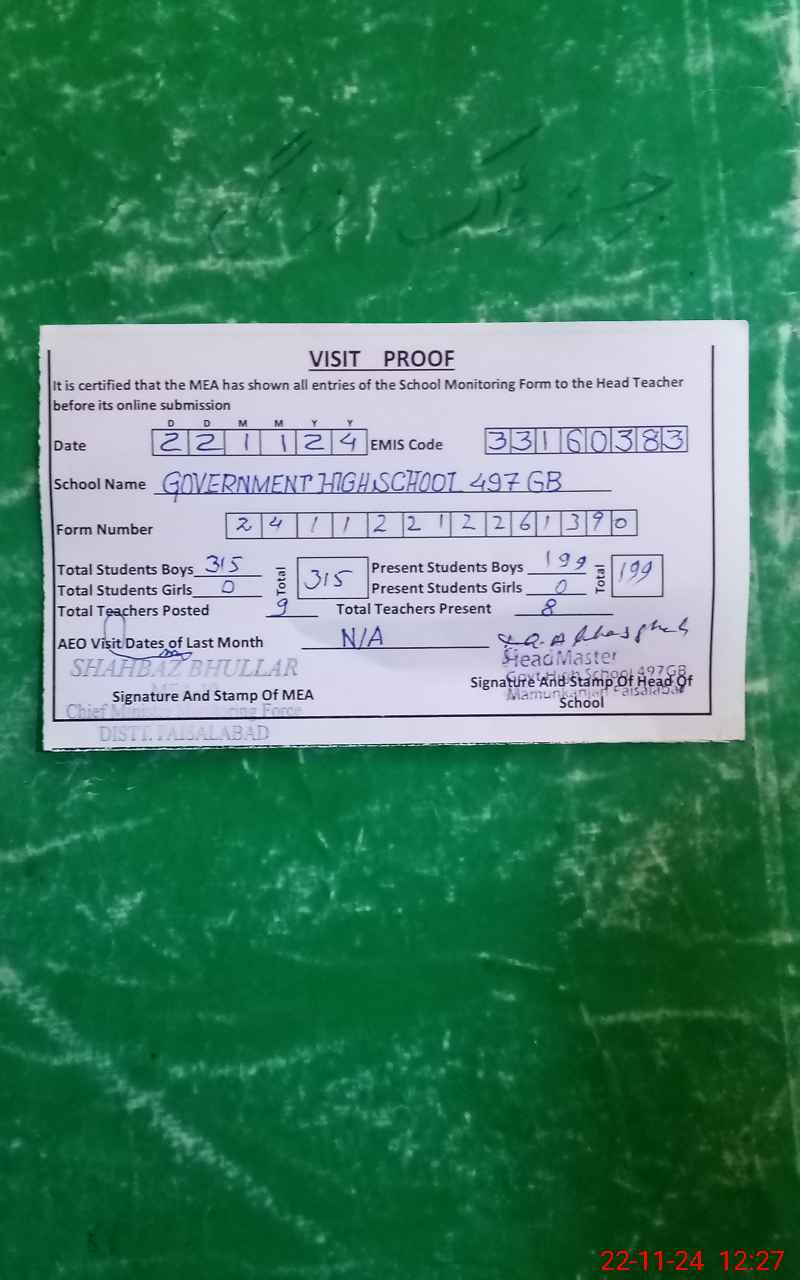 VISIT PROOF
It is certified that the MEA has shown all entries of the School Monitoring Form to the Head Teacher
before its online submission
D D M M Y Y
Date 2 2 1 1 2 4 EMIS Code 3 3 1 6 0 3 8 3
School Name GOVERNMENT HIGH SCHOOL 497 GB
Form Number 2 4 1 1 2 2 1 2 2 6 1 3 9 0
Total Students Boys 315 Total 315 Present Students Boys 199 Total 199
Total Students Girls 0 Present Students Girls 0
Total Teachers Posted 9 Total Teachers Present 8
AEO Visit Dates of Last Month N/A
SHAHBAZ BHULLAR
Head Master
Govt High School 497GB
Signature And Stamp Of MEA
Signature And Stamp Of Head Of
School
Mamunkanjan Faisalabad
Chief Minister Monitoring Force
DISTT. FAISALABAD
22-11-24 12:27